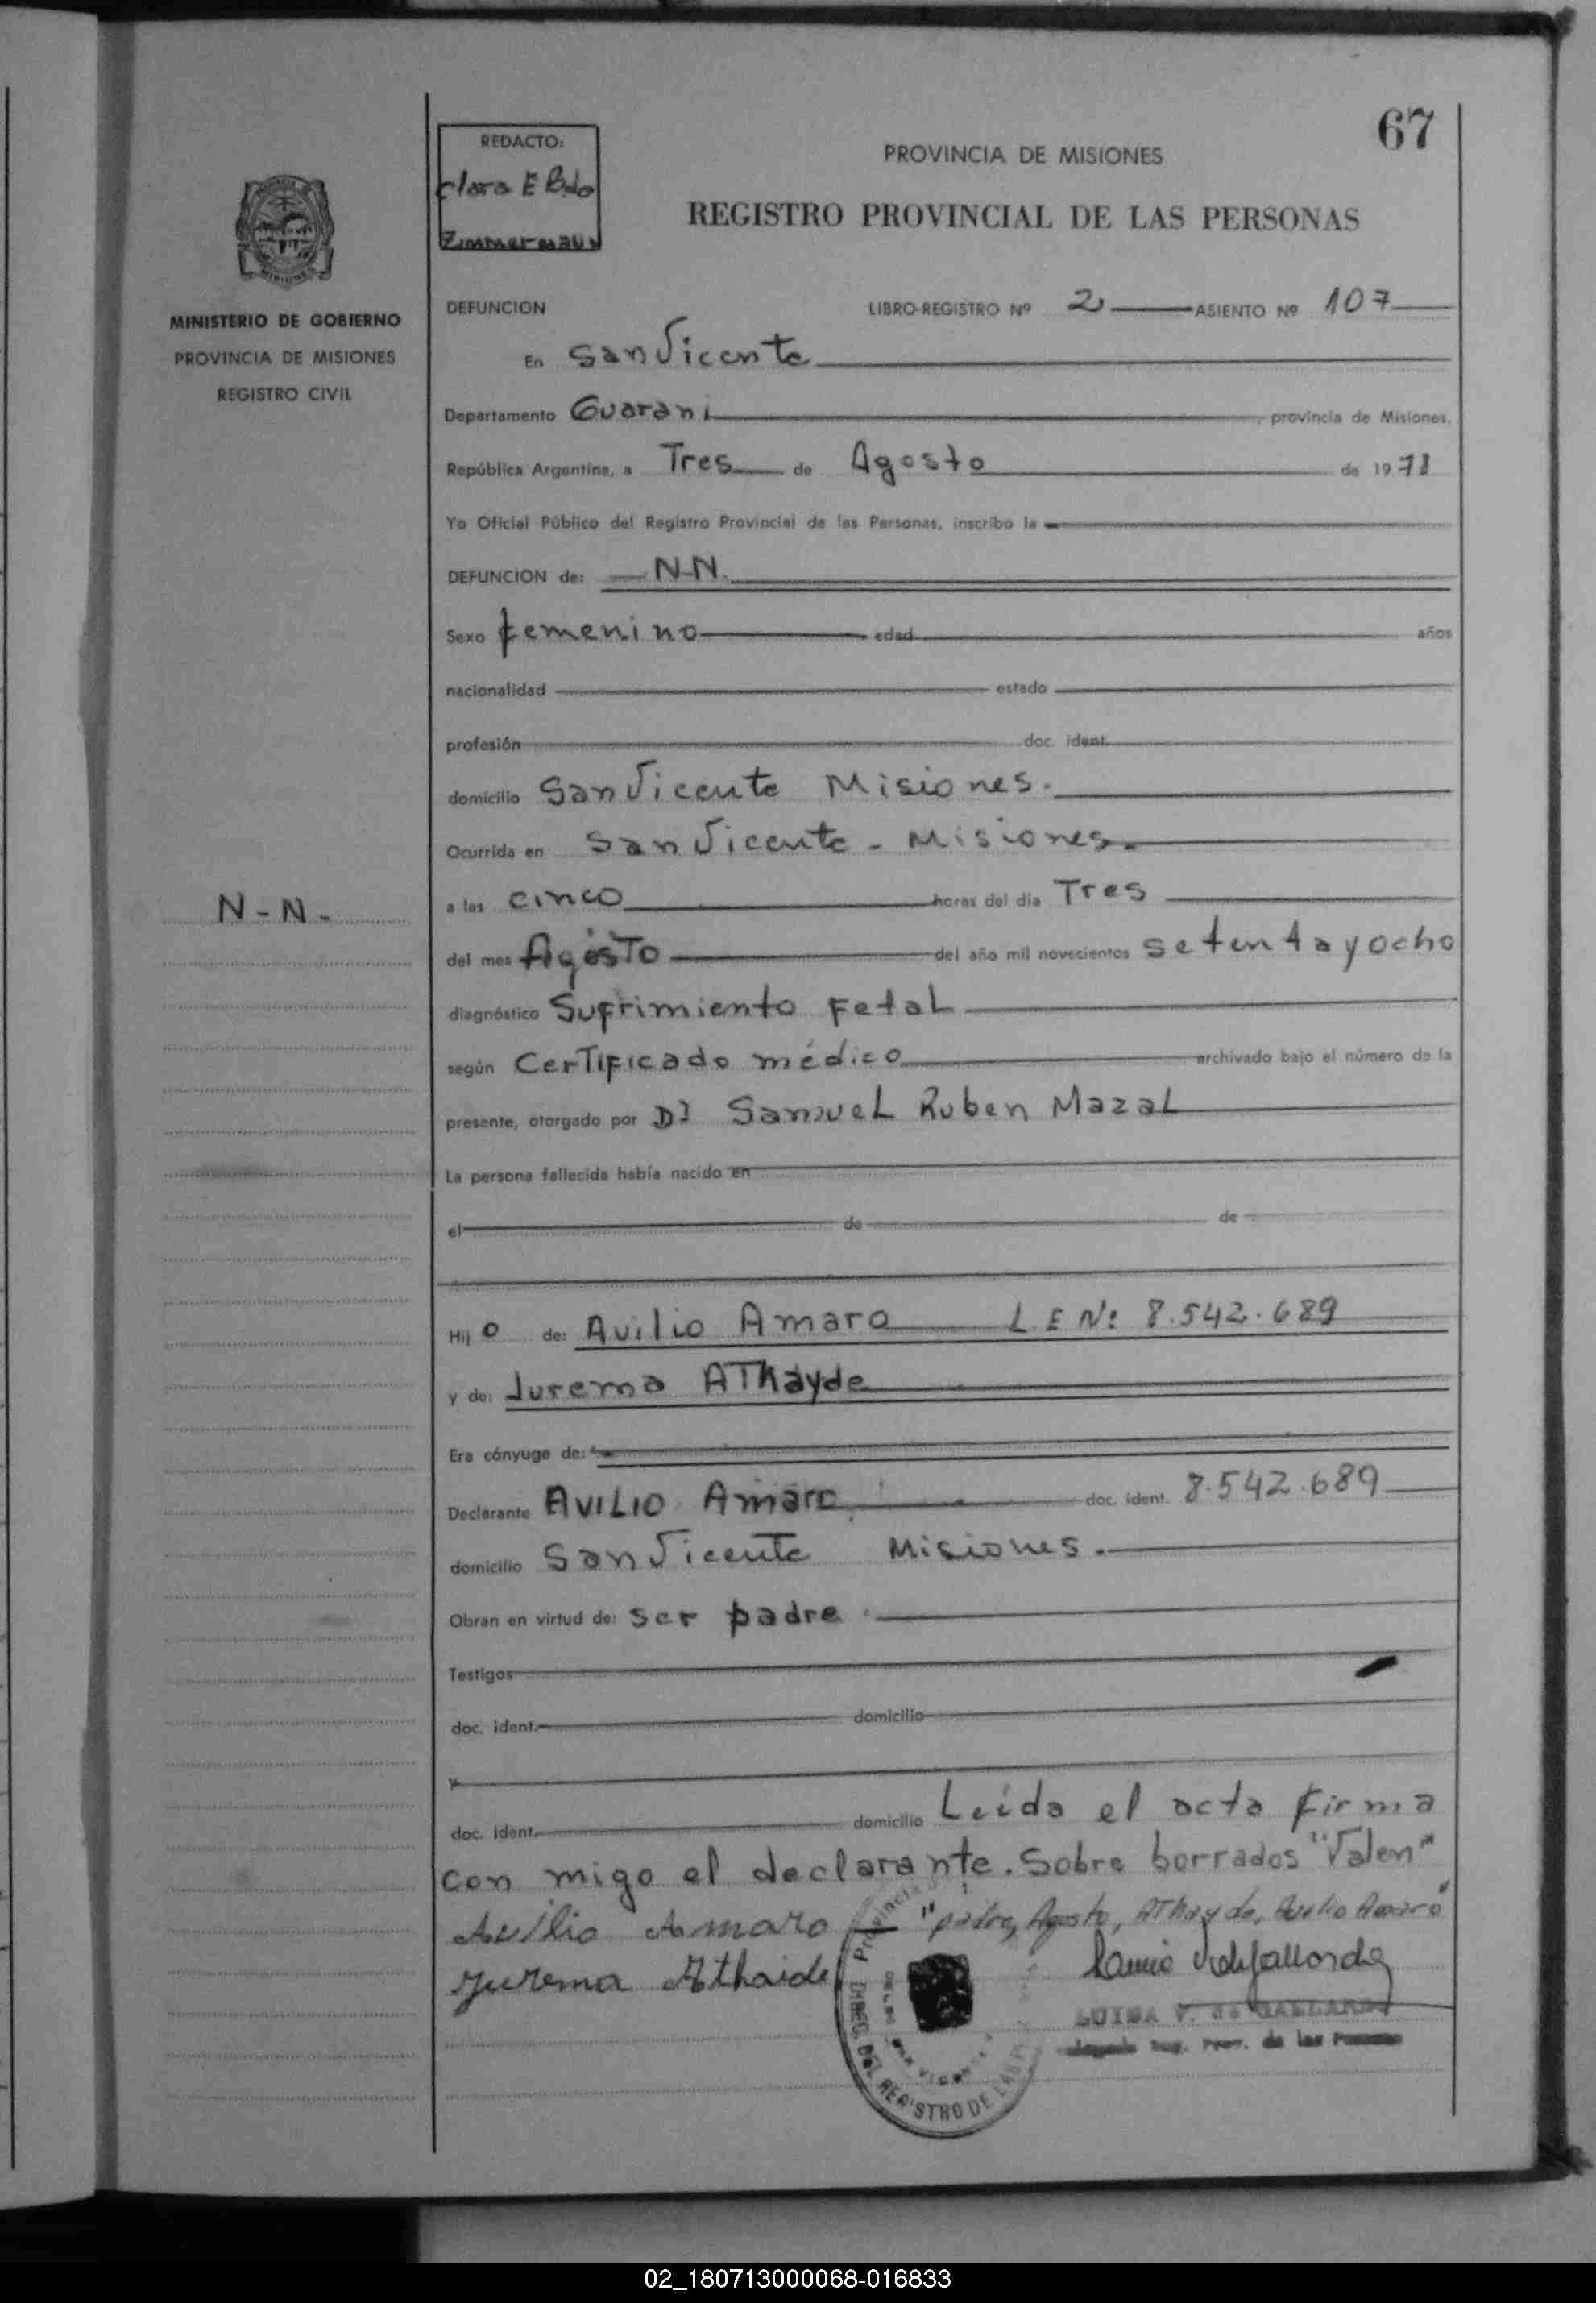 67
REDACTO:
Clara E B.do
Zimmermann
PROVINCIA DE MISIONES
REGISTRO PROVINCIAL DE LAS PERSONAS
MINISTERIO DE GOBIERNO
PROVINCIA DE MISIONES
REGISTRO CIVIL
DEFUNCION LIBRO-REGISTRO Nº 2 ASIENTO Nº 107
En San Vicente
Departamento Guarani, provincia de Misiones,
República Argentina, a Tres de Agosto de 1978
Yo Oficial Público del Registro Provincial de las Personas, inscribo la
DEFUNCION de: N-N.
Sexo femenino edad años
nacionalidad estado
profesión doc. ident.
domicilio San Vicente Misiones.
Ocurrida en San Vicente - Misiones.
N-N-
a las cinco horas del día Tres
del mes Agosto del año mil novecientos setenta y ocho
diagnóstico Sufrimiento Fetal
según Certificado médico archivado bajo el número de la
presente, otorgado por Dr Samuel Ruben Mazal
La persona fallecida había nacido en
el de de
Hij o de: Avilio Amaro L E Nº 8.542.689
y de: Jurema AThayde
Era cónyuge de:
Declarante AVILIO Amaro doc. ident. 8.542.689
domicilio San Vicente Misiones.
Obran en virtud de: ser padre
Testigos
doc. ident. domicilio
y
doc. ident. domicilio Leida el acta firma
con migo el declarante. Sobre borrados "Valen"
Avilio Amaro "padre, Agosto, AThayde, Avilio Amaro"
Jurema Athaide
LUISA V. de GALLARDO
Reg. Prov. de las Personas
Provincia
DIREC. DEL REGISTRO DE LAS P
SAN VICENTE
02_180713000068-016833